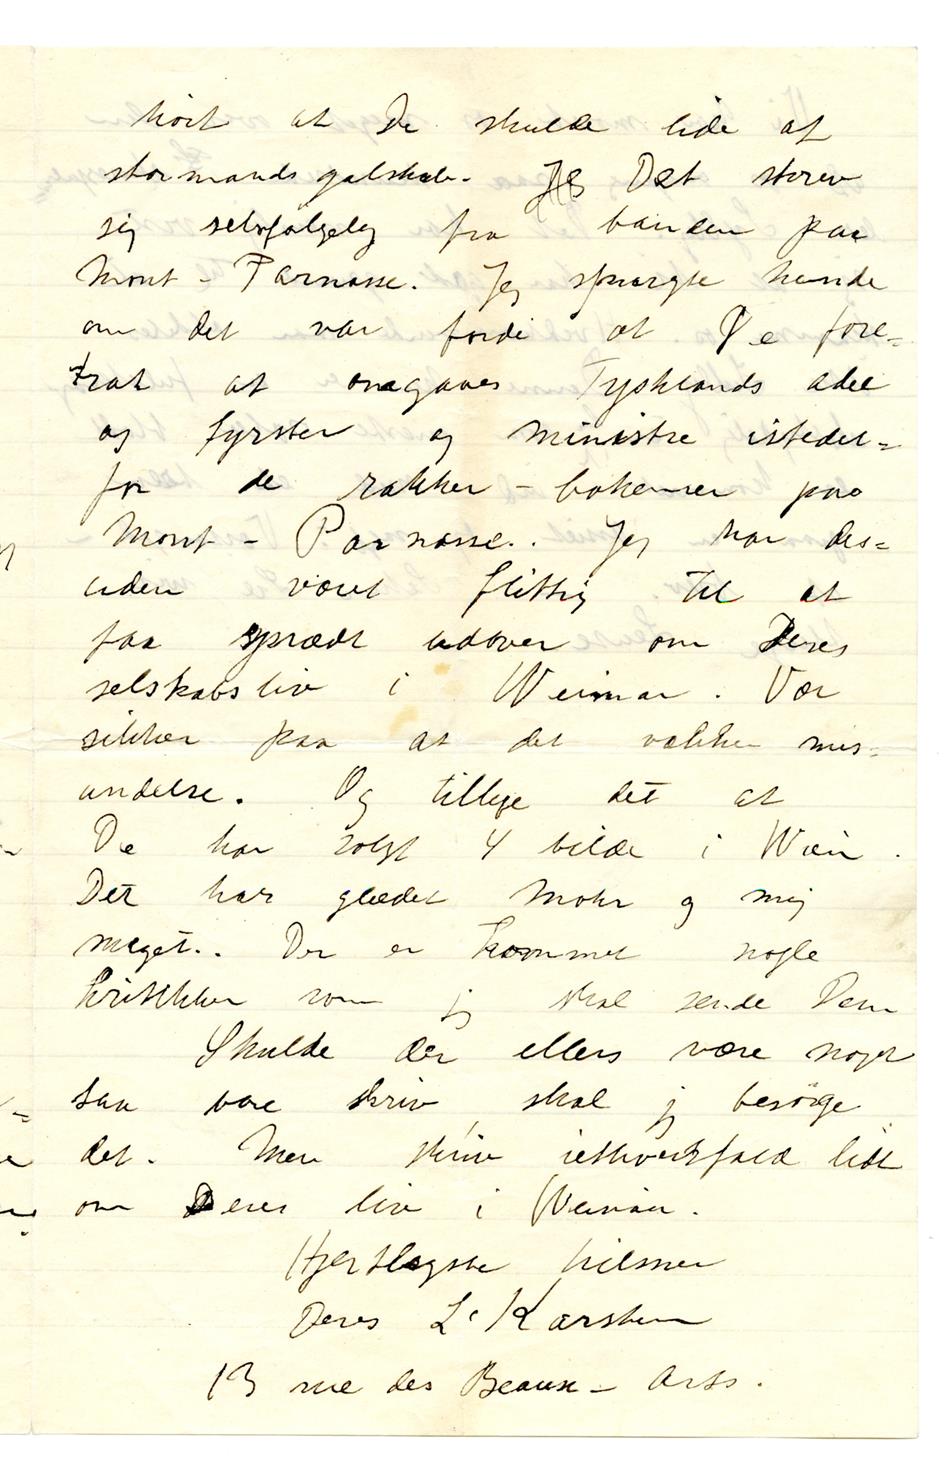 hört at De skulde lide af
stormandsgalskab. Det skrev
sig selvfølgelig fra banden paa
Mont-Parnasse. Jeg spurgte hende
om det var fordi at De fore=
trak at omgaaes Tysklands adel
og fyrster og ministre istedet=
for de rakker-bohemer paa
Mont-Parnasse.. Jeg har des=
uden været flittig til at
faa sprædt udover om Deres
selskabsliv i Weimar. Vær
sikker paa at det vækker mis=
undelse. Og tillige det at
De har solgt 4 bilde i Wien.
Det har glædet Mohr og mig
meget.. Der er kommet nogle
kritikker som jeg skal sende Dem
Skulde der ellers være noget
saa bare skriv, skal jeg besörge
det. Men skriv iethvertfald lidt
om Deres liv i Weimar.
Hjertligste hilsner
Deres L. Karsten
13 rue des Beaux-Arts.